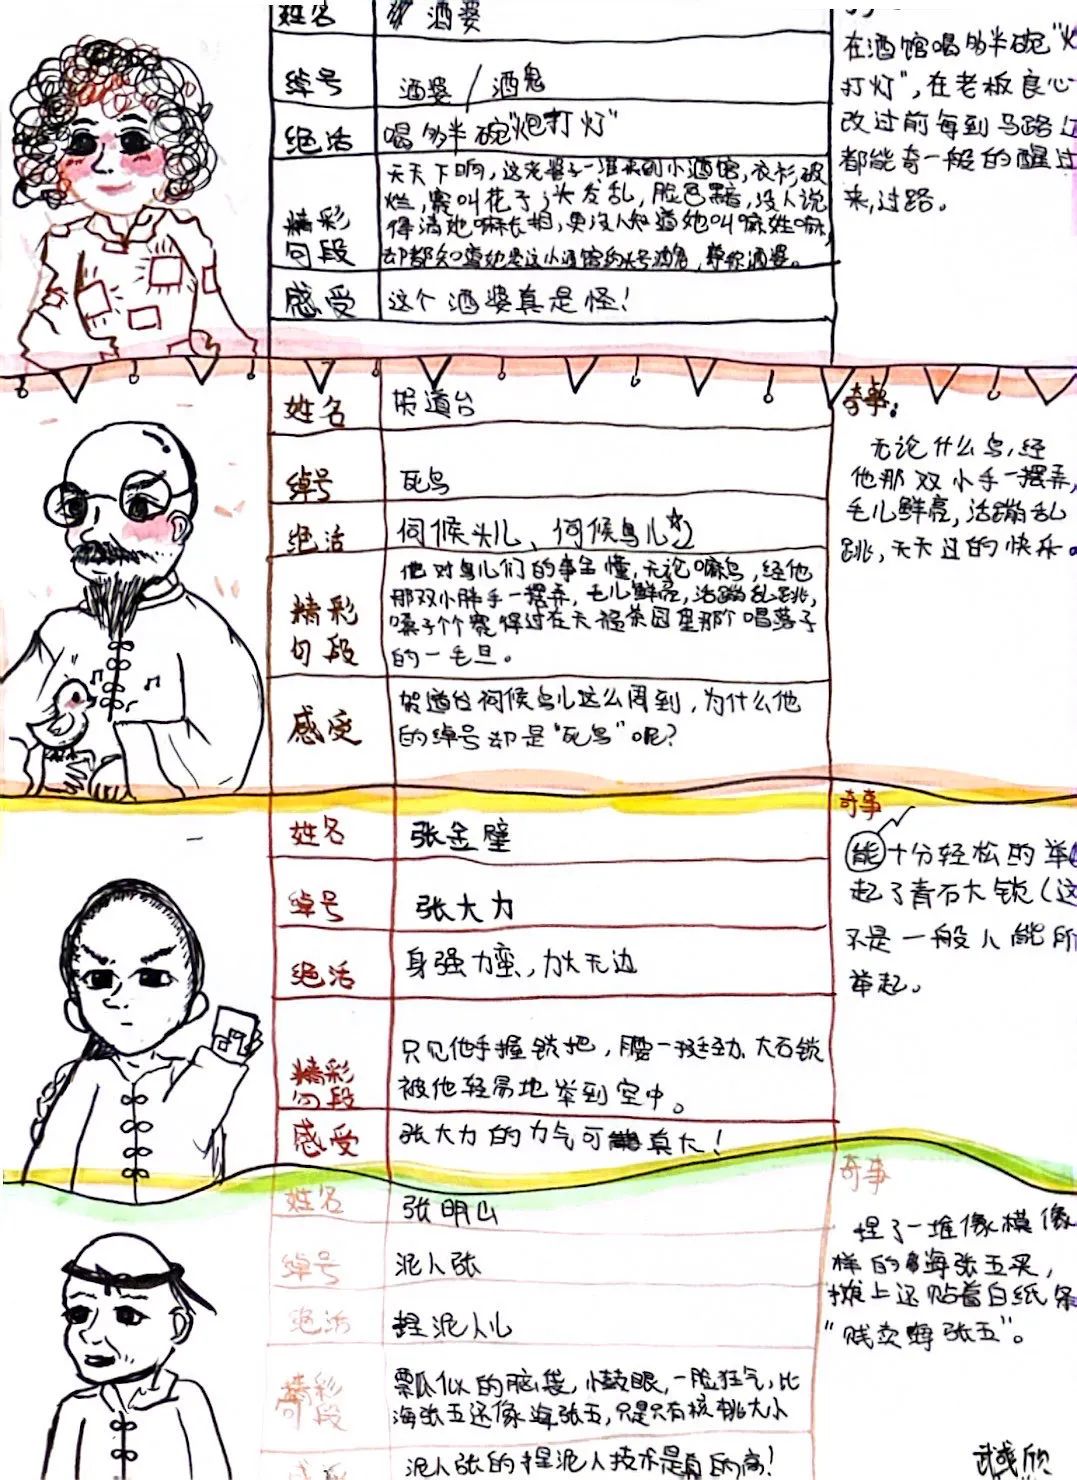 姓名 酒婆
绰号 酒婆/酒鬼
绝活 喝多半碗"炮打灯"
精彩句段
天天下晌,这老婆子一准来到小酒馆,衣衫破
烂,赛叫花子;头发乱,脸色黯,没人说
得清她嘛长相,更没人知道她叫嘛姓嘛,
却都知道她是这小酒馆的头号酒鬼,尊称酒婆。
感受 这个酒婆真是怪!
在酒馆喝多半碗"炮
打灯",在老板良心
改过前每到马路边
都能奇一般的醒过
来,过路。
姓名 贺道台
绰号 死鸟
绝活 伺候头儿、伺候鸟儿
精彩句段
他对鸟儿们的事全懂,无论嘛鸟,经他
那双小胖手一摆弄,毛儿鲜亮,活蹦乱跳,
嗓子个个赛得过在天福茶园里那个唱落子
的一毛旦。
感受
贺道台伺候鸟儿这么周到,为什么他
的绰号却是"死鸟"呢?
奇事:
无论什么鸟,经
他那双小手一摆弄,
毛儿鲜亮,活蹦乱
跳,天天过的快乐。
姓名 张金璧
绰号 张大力
绝活 身强力蛮,力大无边
精彩句段
只见他手握锁把,腰一挺劲,大石锁
被他轻易地举到空中。
感受 张大力的力气可真大!
奇事
能十分轻松的举
起了青石大锁(这
不是一般人能所
举起。
姓名 张明山
绰号 泥人张
绝活 捏泥人儿
精彩句段
瓢似的脑袋,小鼓眼,一脸狂气,比
海张五还像海张五,只是只有核桃大小
感受 泥人张的捏泥人技术是真的高!
奇事
捏了一堆像模像
样的海张五买,
摊上还贴着白纸条
"贱卖海张五"。